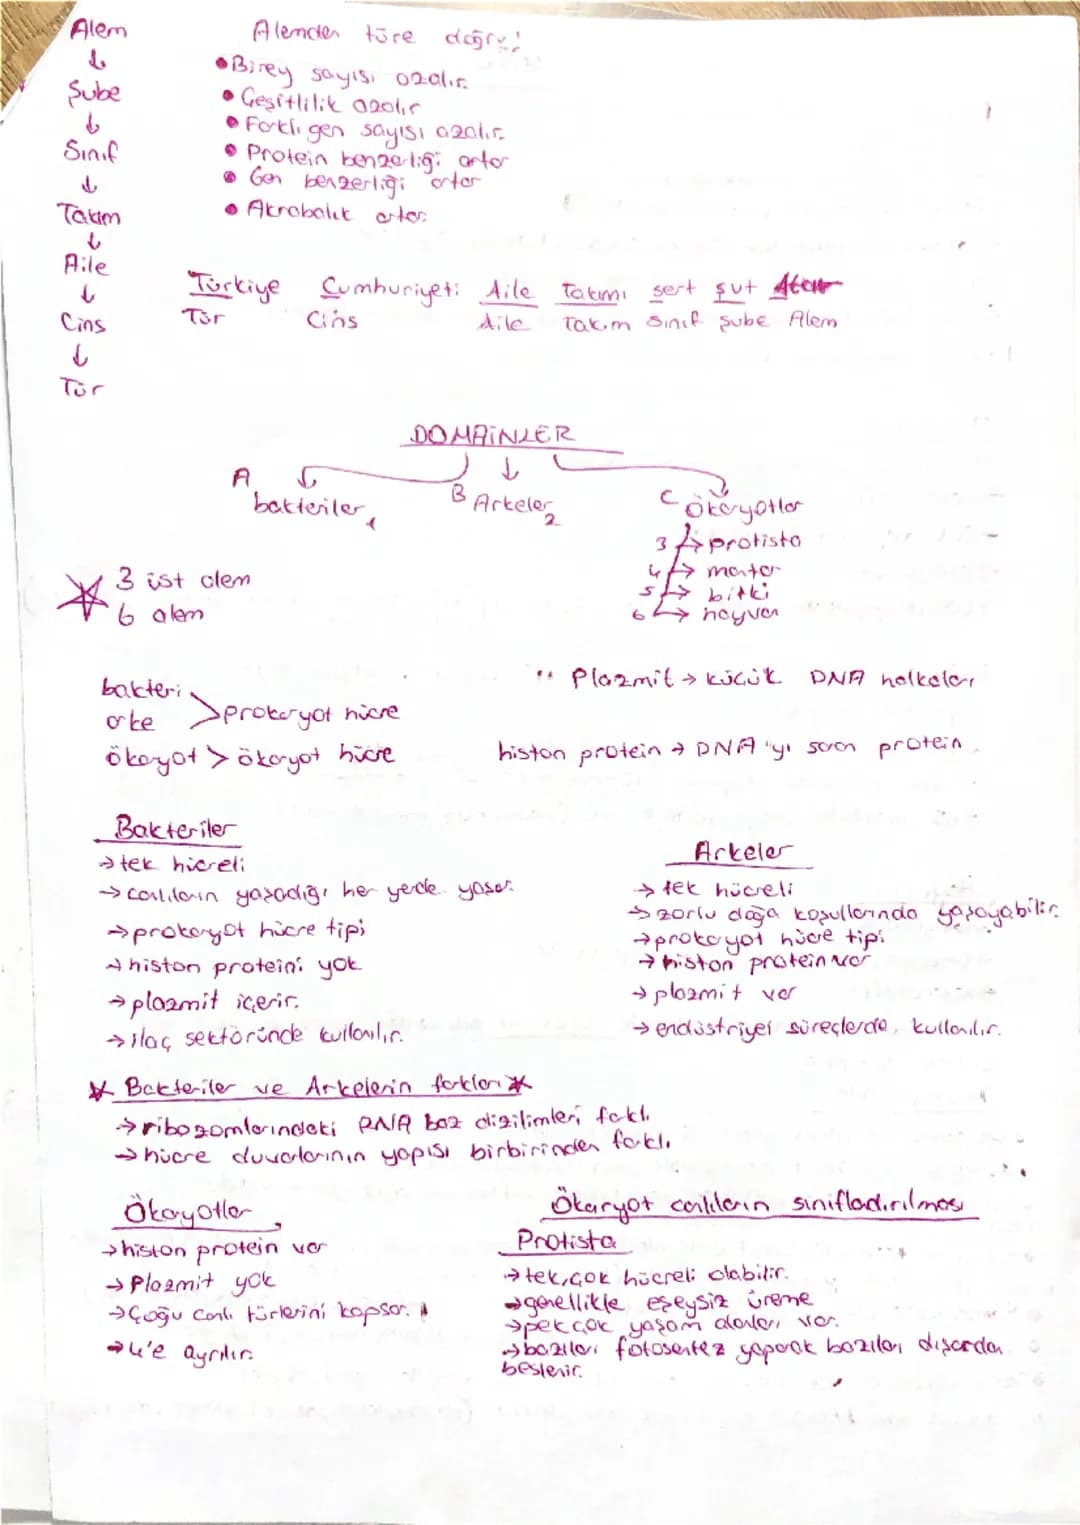 Alem
↓
Şube
↓
Sınıf
↓
Takım
↓
Aile
↓
Cins
↓
Tür
Alemden türe doğru!
• Birey sayısı azalır.
• Çeşitlilik azalır
• Farklı gen sayısı azalır.
• Protein benzerliği artar
• Gen benzerliği artar
• Akrabalık artar.
Türkiye Cumhuriyeti Aile Takımı sert şut
Tür Cins Aile Takım Sınıf Şube Alem
DOMAİNLER
A bakteriler 1
B Arkeler 2
C Ökaryotlar
3 → protista
4 → mantar
5 → bitki
6 → hayvan
3 üst alem
6 alem
bakteri
arke > prokaryot hücre
ökaryot > ökaryot hücre
" Plazmit → küçük DNA halkaları
histon protein → DNA'yı saran protein.
Bakteriler
→ tek hücreli
→ canlıların yaşadığı her yerde yaşar.
→ prokaryot hücre tipi
→ histon proteini yok
→ plazmit içerir.
→ ilaç sektöründe kullanılır.
Arkeler
→ tek hücreli
→ zorlu doğa koşullarında yaşayabilir.
→ prokaryot hücre tipi
→ histon protein var
→ plazmit var
→ endüstriyel süreçlerde kullanılır.
Bakteriler ve Arkelerin farkları
→ ribozomlarındaki RNA baz dizilimleri faklı
→ hücre duvarlarının yapısı birbirinden farklı
Ökaryotlar
→ histon protein var
→ Plazmit yok
→ Çoğu canlı türlerini kapsar.
→ 4'e ayrılır.
Ökaryot canlıların sınıfladırılması
Protista
→ tek, çok hücreli olabilir.
→ genellikle eşeysiz üreme
→ pek çok yaşam alanları var.
→ bazıları fotosentez yaparak bazıları dışardan
beslenir.